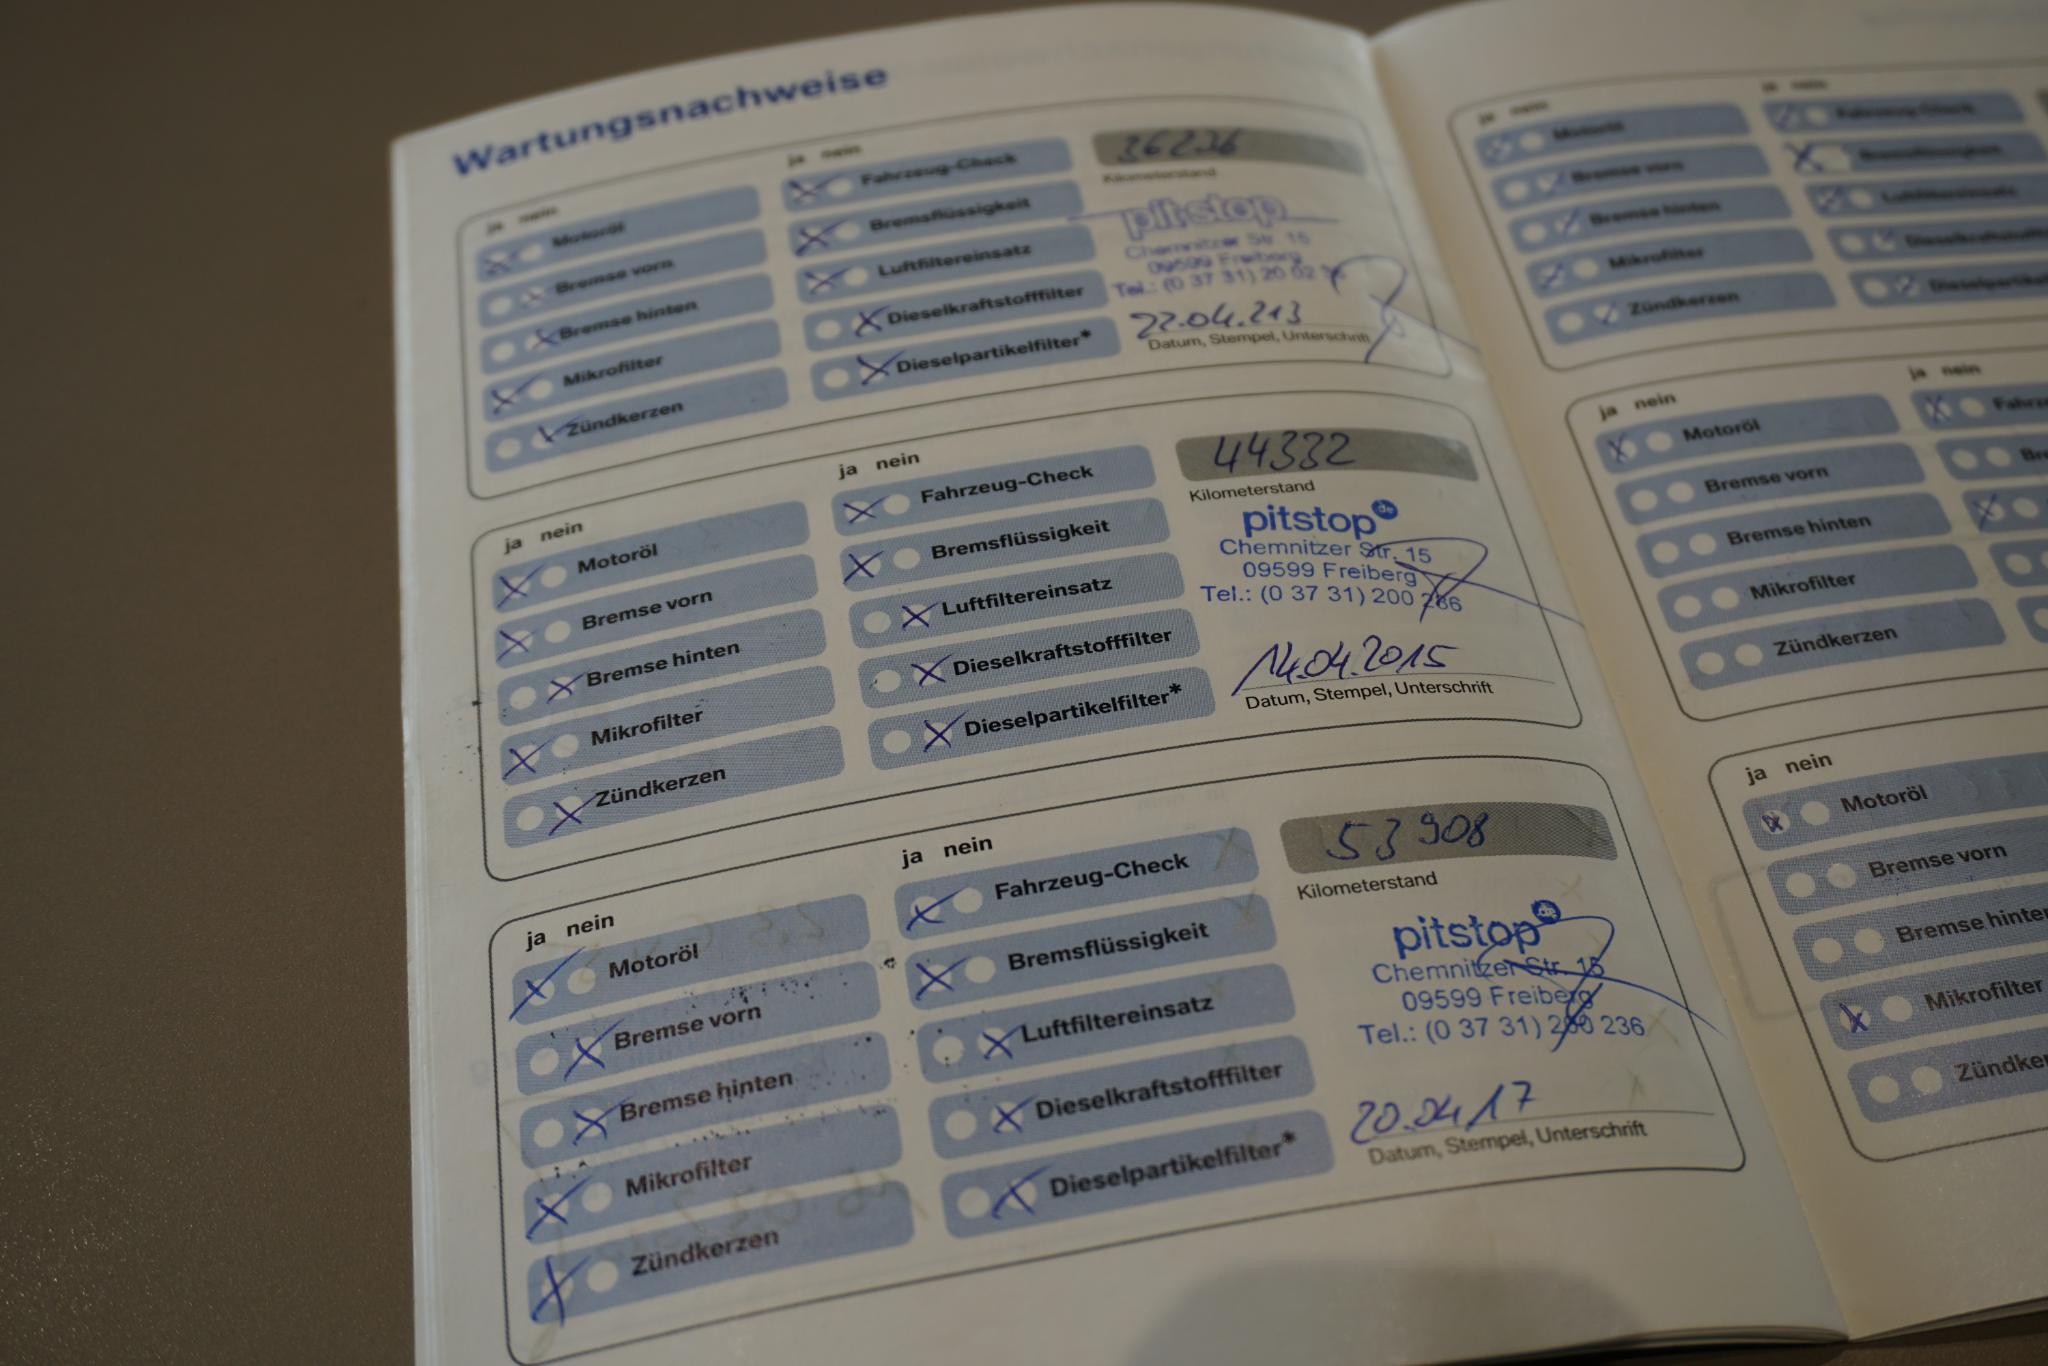 Wartungsnachweise
ja nein
Motoröl
Bremse vorn
Bremse hinten
Mikrofilter
Zündkerzen
ja nein
Fahrzeug-Check
Bremsflüssigkeit
Luftfiltereinsatz
Dieselkraftstofffilter
Dieselpartikelfilter*
36236
Kilometerstand
pitstop
Chemnitzer Str. 15
09599 Freiberg
Tel.: (0 37 31) 20 02
22.04.213
Datum, Stempel, Unterschrift
ja nein
Motoröl
Bremse vorn
Bremse hinten
Mikrofilter
Zündkerzen
ja nein
Fahrzeug-Check
Bremsflüssigkeit
Luftfiltereinsatz
Dieselkraftstofffilter
Dieselpartikelfilter*
44332
Kilometerstand
pitstop.de
Chemnitzer Str. 15
09599 Freiberg
Tel.: (0 37 31) 200 236
14.04.2015
Datum, Stempel, Unterschrift
ja nein
Motoröl
Bremse vorn
Bremse hinten
Mikrofilter
Zündkerzen
ja nein
Fahrzeug-Check
Bremsflüssigkeit
Luftfiltereinsatz
Dieselkraftstofffilter
Dieselpartikelfilter*
53 908
Kilometerstand
pitstop.de
Chemnitzer Str. 15
09599 Freiberg
Tel.: (0 37 31) 200 236
20.04.17
Datum, Stempel, Unterschrift
ja nein
Motoröl
Bremse vorn
Bremse hinten
Mikrofilter
Zündkerzen
ja nein
Fahrzeug-Check
Bremsflüssigkeit
Luftfiltereinsatz
Dieselkraftstofff
Dieselpartike
ja nein
Motoröl
Bremse vorn
Bremse hinten
Mikrofilter
Zündkerzen
ja nein
Fahrze
Br
ja nein
Motoröl
Bremse vorn
Bremse hinten
Mikrofilter
Zündke